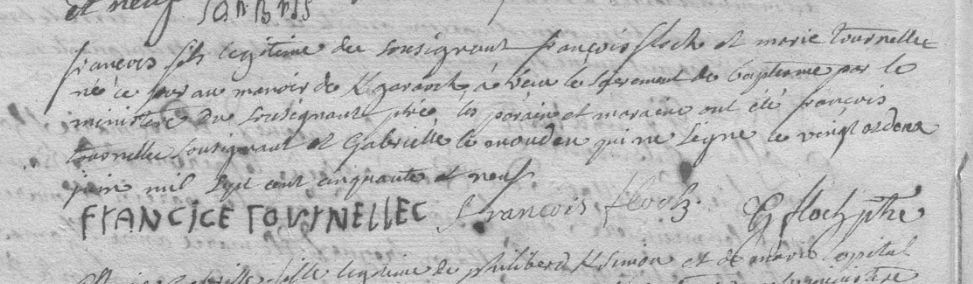 et neuf
françois fils legitime du sousignant françois floch et marie tournellec
né ce jour au manoir de K/garaoch, à recu le sacrement de baptesme par le
ministere du sousignant prêe les parain et maraine ont été françois
tournellec sousignant et Gabrielle le moudon qui ne signe le vingt et deux
juin mil sept cent cinquante et neuf
FrANCICE TOUrNELLEC françois floch G floch ptre
fille legitime de philibert K/simon et de marie opital
ministere